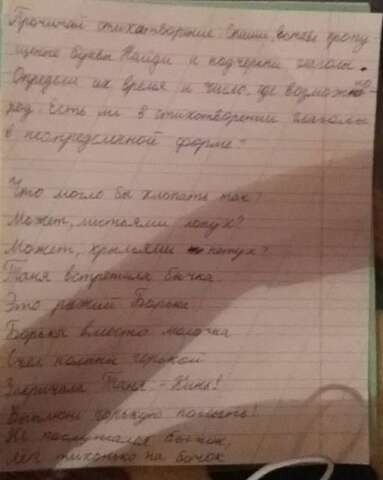 Прочитай стихотворение. Спиши, вставь пропу
щенные буквы. Найди и подчеркни глаголы.
Определи их время и число, где возможно -
род. Есть ли в стихотворении глаголы
в неопределенной форме?
Что могло бы хлопать так?
Может, листьями лопух?
Может, крыльями петух?
Таня встретила бычка.
Это рыжий Борька.
Борька вместо молочка
Съел полыни горькой
Закричала Таня: - Кинь!
Выплюни горькую полынь!
Не послушался бычок,
Лег тихонько на бочок